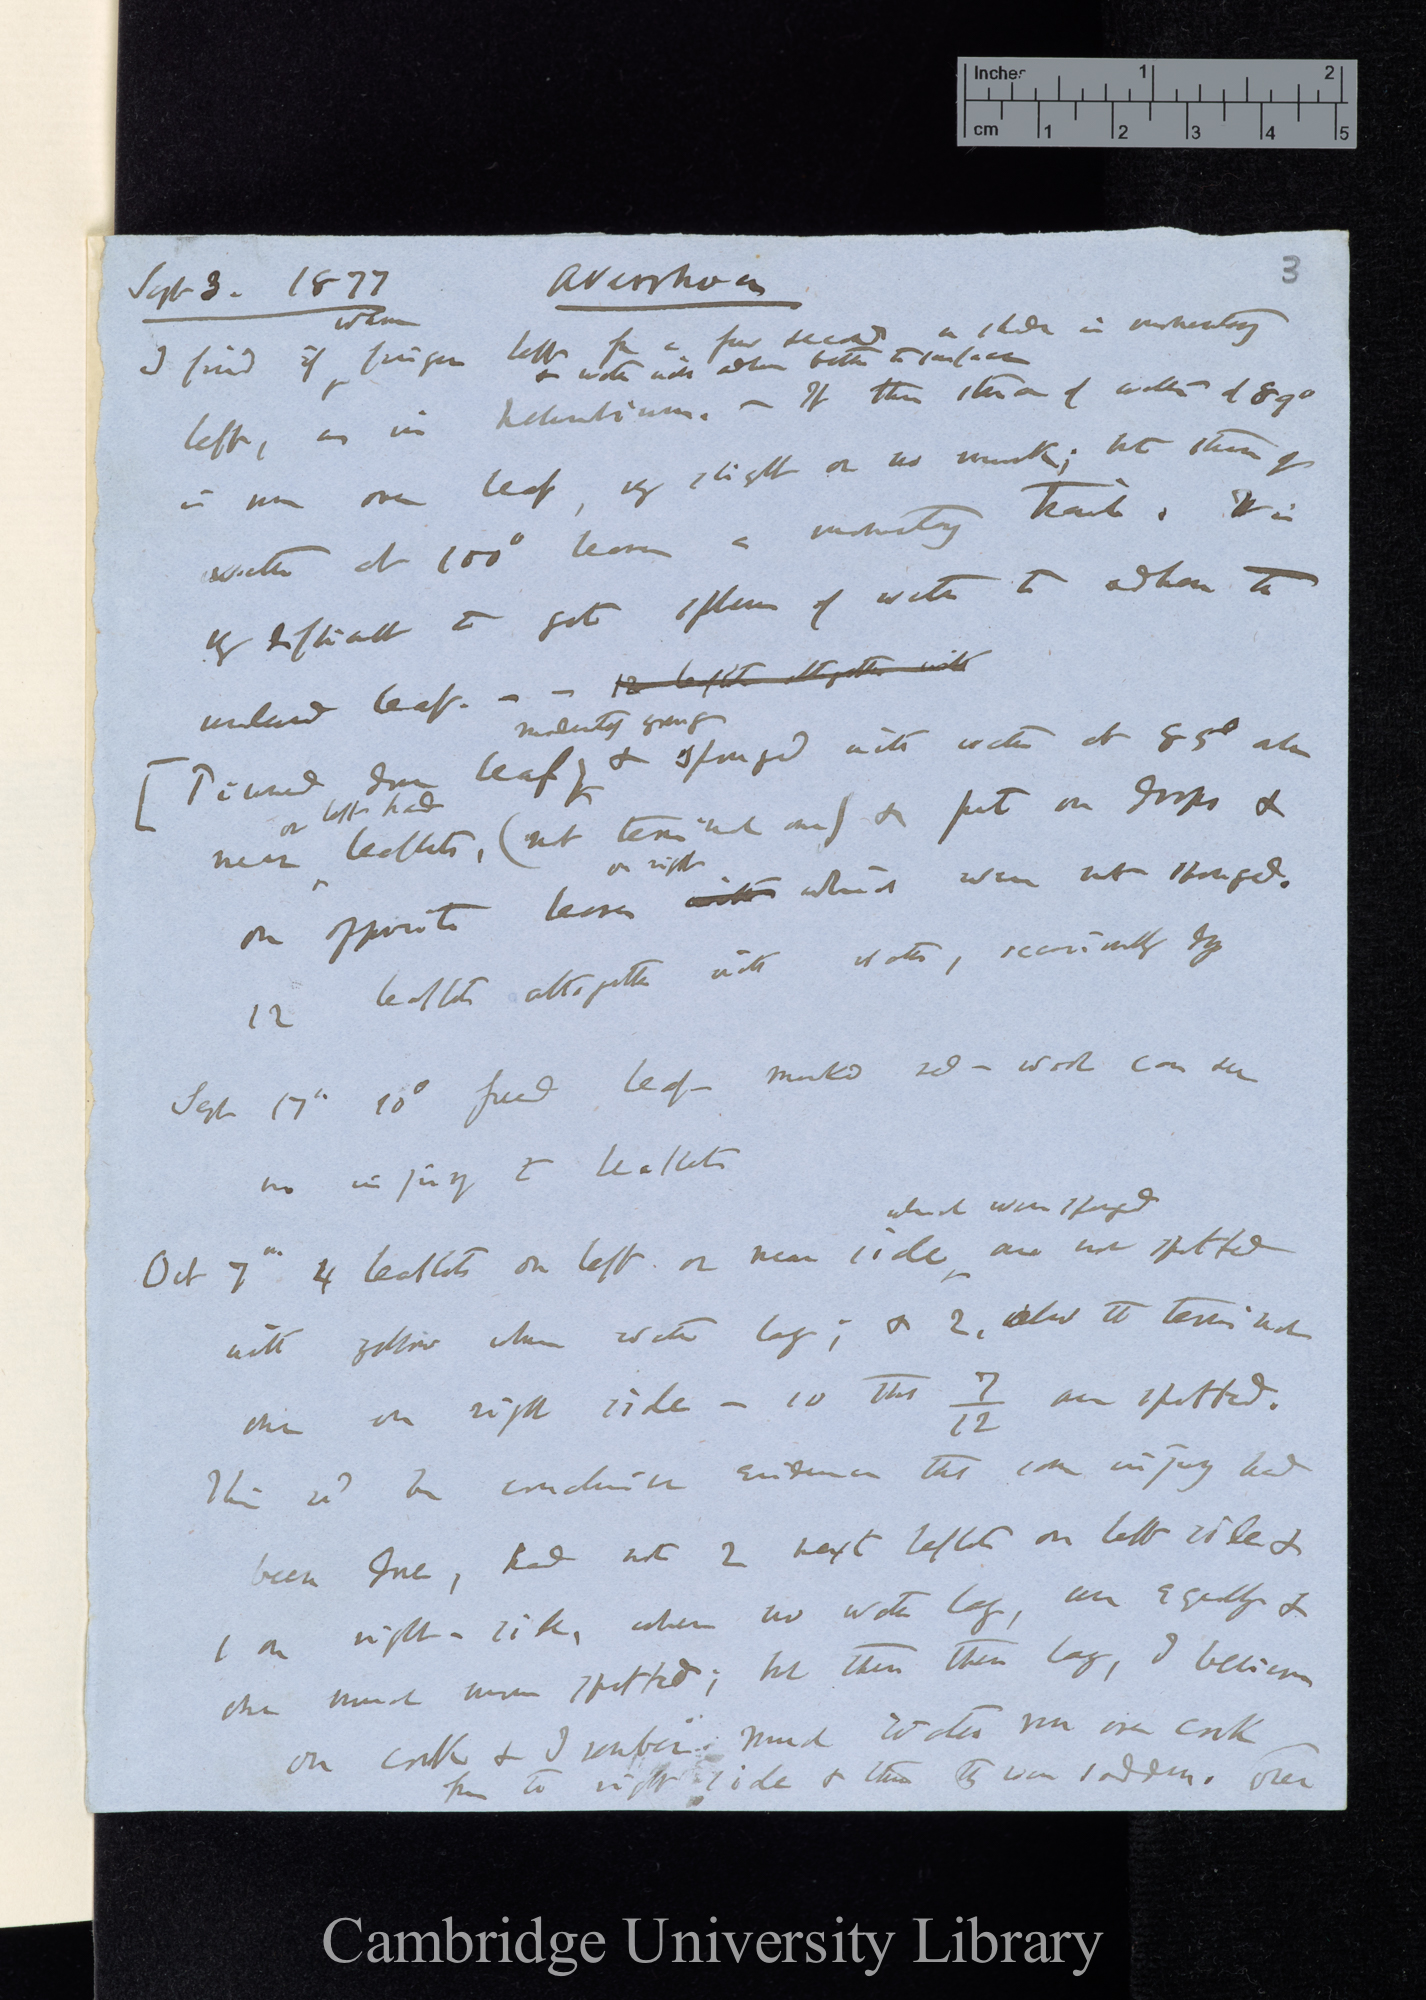 Inches 1 2
cm 1 2 3 4 5
3
Sept 3. 1877 Averrhoa
when
I find if finger left for a few seconds a is momentary
& water will adhere better to surface
left, as in . — If then stream of water of 89°
is run over leaf, vy slight or no mark; but stream of
water at 100° leaves a momentary trail. It is
vy difficult to get of water to adhere to
leaf. — — 12 leaflets altogether with
moderately young
[Pinned down leaf, & sponged with water at 85°
on left hand
near leaflets, (not terminal one) & put on drops &
on right
on opposite leaves with which were not sponged.
12 leaflets altogether with water,
Sept 17th 10° leaf marked red — wool can see
no injury to leaflets
which were sponged
Oct 7th 4 leaflets on left or near side are now spotted
with yellow where water lay; & 2, also the terminal
one on right side — so that 7/12 are spotted.
This wd be conclusive evidence that some injury had
been done, had not 2 next leaflets on left side &
1 on right side, where no water lay, are equally &
one much more spotted; but then these lay, I believe
on cork & I much water run over cork
to right side & thus they were sodden. over
Cambridge University Library